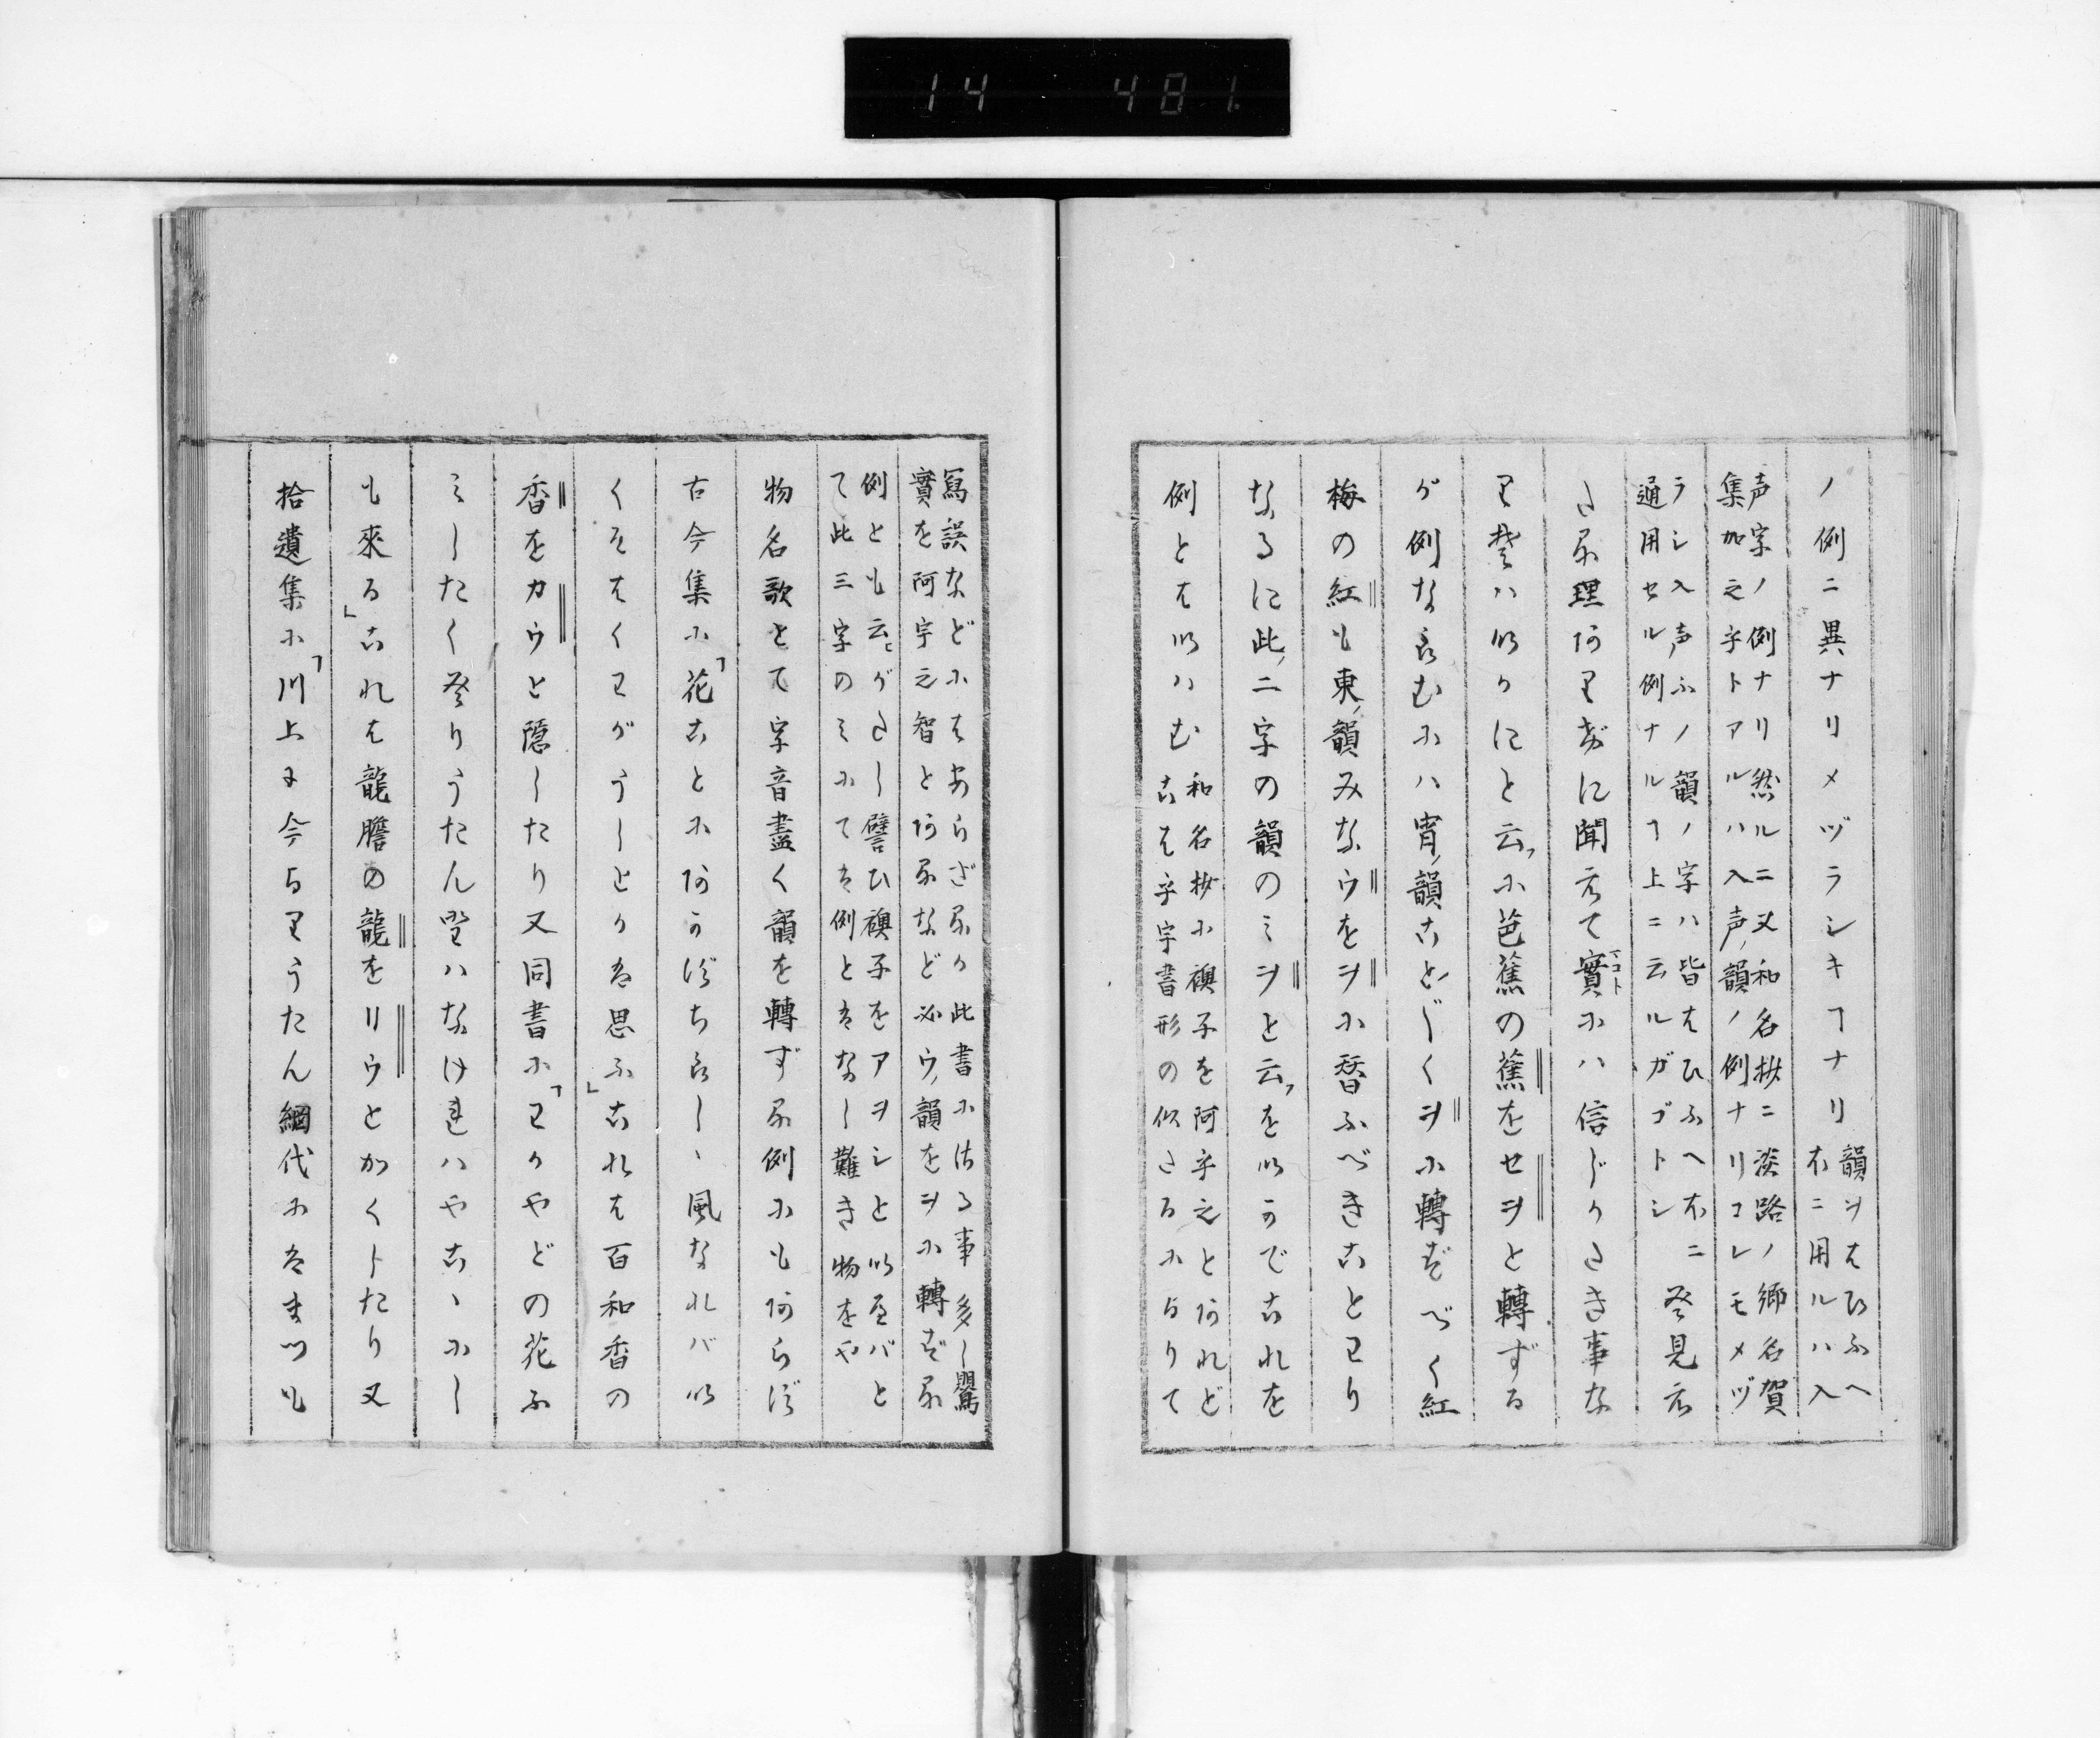 14 481.
ノ例ニ異ナリメヅラシキヿナリ
韻ヲはひふへ
ホニ用ルハ入
声字ノ例ナリ然ルニ又和名抄ニ淡路ノ郷名賀
集加之宇トアルハ入声ノ韻ノ例ナリコレモメヅ
ラシ入声ふノ韻ノ字ハ皆はひふへホニ
通用セル例ナルヿ上ニ云ルガゴトシ
発見え
る理ありげに聞えて實ホハ信じがたき事な
マコト
り楚ハいかにと云フホ芭蕉の蕉をセヲと轉ずる
が例ならむホハ宵ノ韻ことごとくヲホ轉ずべく紅
梅の紅も東ノ韻みなウをヲホ替ふべきことわり
なるに此ノ二字の韻のミヲと云フをいかでこれを
例とはいハむ
和名抄ホ襖子を阿乎之とあれど
こは乎字書形の似たるホよりて
寫誤などホはあらざるか此書ホは此る事多し
實を阿字之智とあるなど必ウノ韻をヲホ轉ずる
例とも云ヒがたし譬ひ襖子をアヲシといへバと
て此三字のミホては例とはなし難き物をや
物名歌とて字音盡く韻を轉ずる例ホもあらず
古今集ホ「花ことホあかずちらしゝ風なれバい
くそはくわがうしとかは思ふ」これは百和香の
香をカウと隠したり又同書ホ「わかやどの花ふ
ミしたく登りうたん野ハなけれハやこゝホし
も来る」これは龍膽の龍をリウとかくしたり又
拾遺集ホ「川上に今よりうたん網代ホはまつも